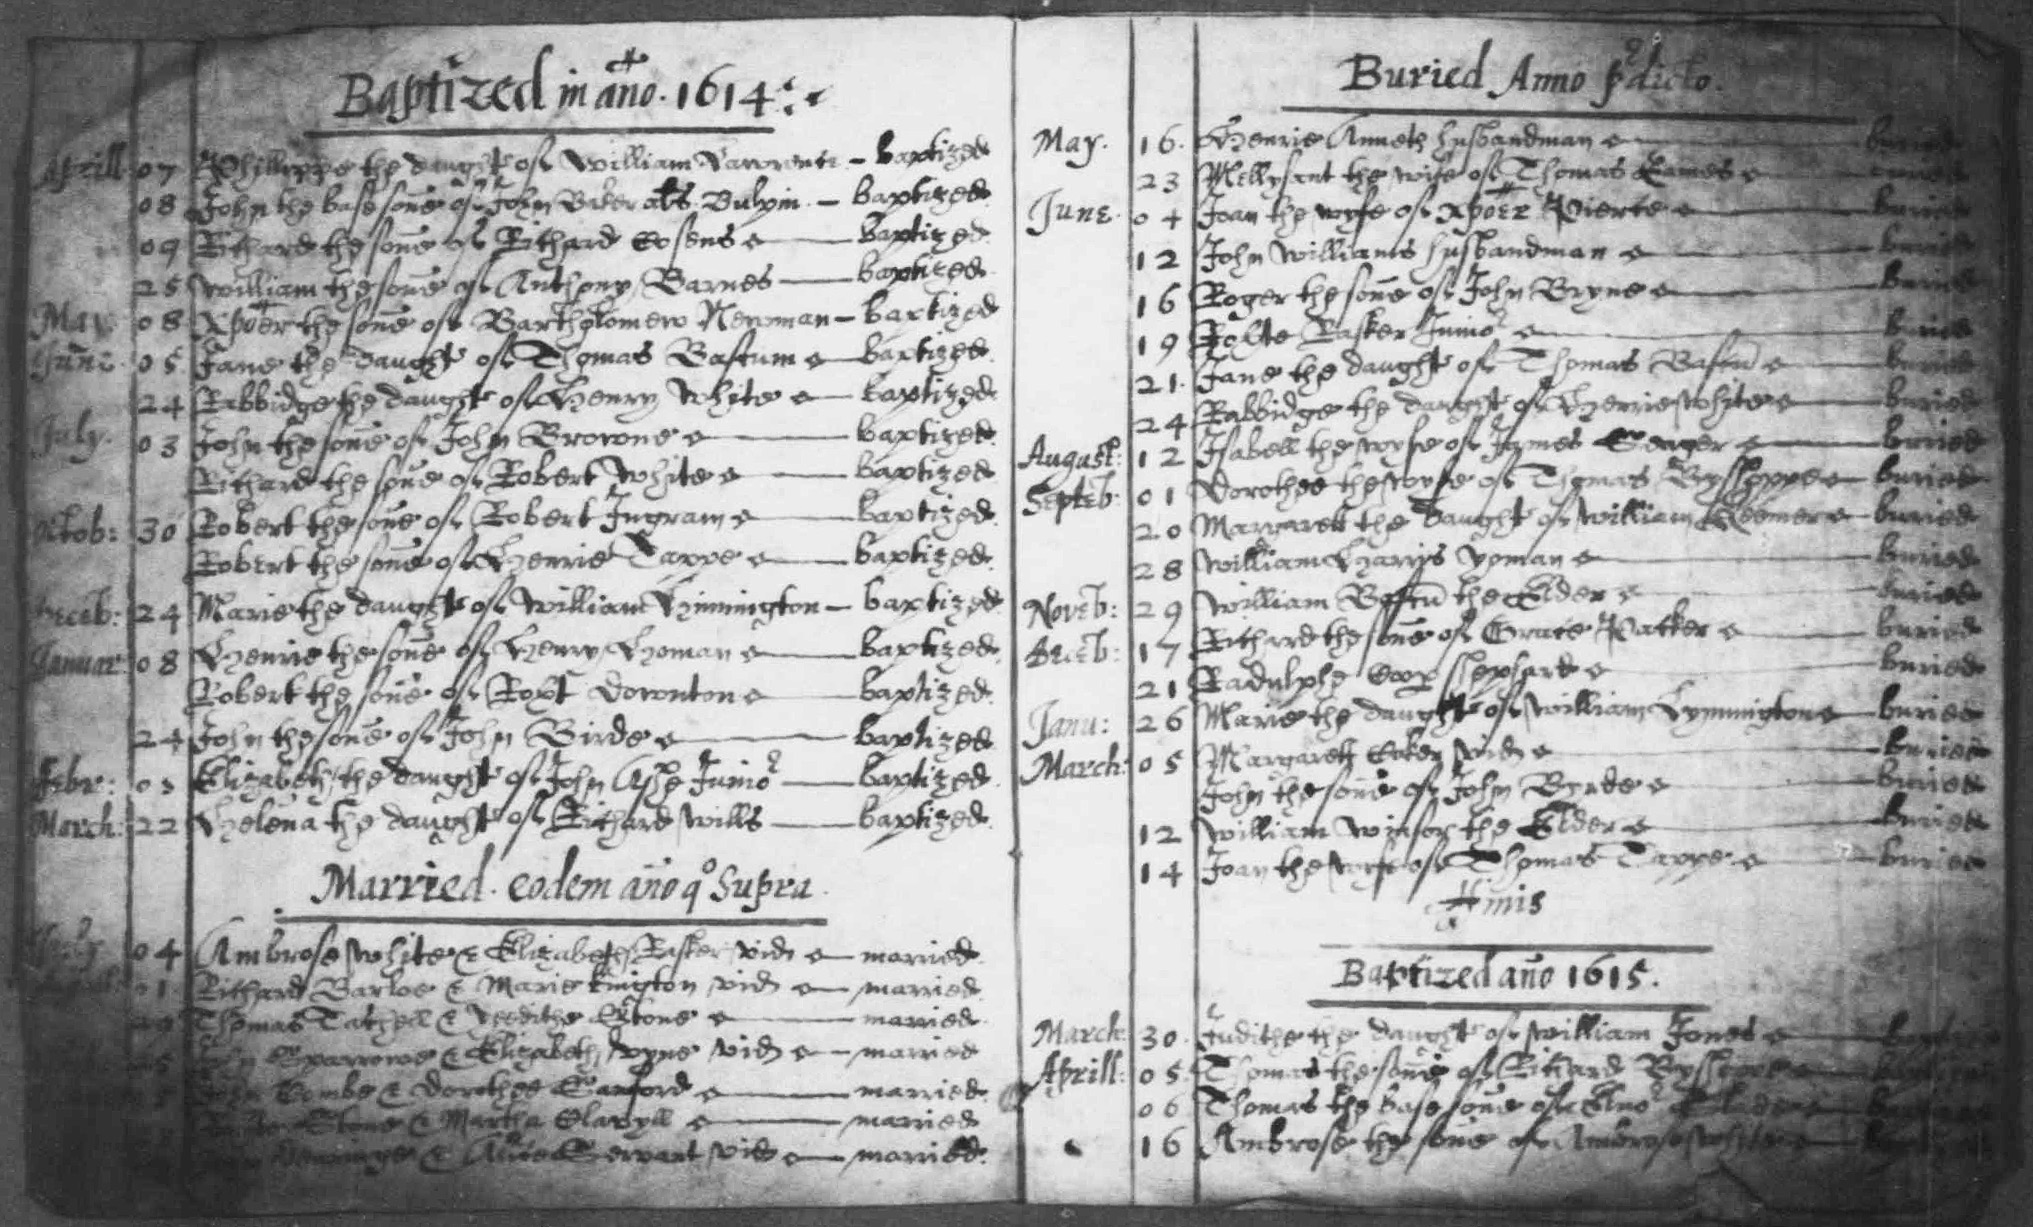 Baptized in año. 1614
Aprill 07 Phillippe the daught of William Lawrence baptized
08 John the base soñe of John Baker als Bulpin baptized
09 Richard the soñe of Richard Cosens baptized
25 William the soñe of Anthony Barnes baptized
May 08 Xpoer the soñe of Bartholomew Newman baptized
June 05 Jane the daught of Thomas Bastum baptized
24 Rabbidge the daught of Henry White baptized
July 03 John the soñe of John Browne baptized
Richard the soñe of Robert White baptized
Octob: 30 Robert the soñe of Robert Ingram baptized
Robert the soñe of Henrie Tappe baptized
Deceb: 24 Marie the daught of William Hinnington baptized
Januar 08 Henrie the soñe of Henry Homan baptized
Robert the soñe of Robt Downton baptized
24 John the soñe of John Birde baptized
Febr: 03 Elizabeth the daught of John Junior baptized
March: 22 Helena the daught of Richard Wills baptized
Married eodem año qo Supra
04 Ambrose White & Elizabeth Rasker vid married
Richard Barloe & Marie Kington vid married
Thomas Tatchell & married
Sparrowe & Elizabeth Vyne vid married
John Combe & Dorothee married
& Martha married
& Alice Servant vid married
Buried Anno pdicto.
May. 16. Henrie Annett husbandman buried
23 Mellysant the wife of Thomas Eames buried
June 04 Joan the wyfe of Xpoer Pierce buried
12 John Williams husbandman buried
16 Roger the soñe of John Bryne buried
19 Rasker Junior buried
21. Jane the daught of Thomas Bastũ buried
24 Rabbidge the daught of Henrie White buried
August: 12 Isabell the wyfe of James Seager buried
Septeb: 01 Dorothee the wyfe of Thomas Bysshoppe buried
20 Margarett the daught of William buried
28 William Harrys yoman buried
Noveb: 29 William Bastũ the Elder buried
Deceb: 17 Richard the soñe of Grace Packer buried
21 Radulphe Coop shephard buried
Janu: 26 Marie the daught of William Hynnington buried
March: 05 Margarett vid buried
John the soñe of John Byrde buried
12 William Winsor the Elder buried
14 Joan the wyfe of Thomas Tappe buried
Finis
Baptized año 1615.
March 30. Judithe the daught of William Jones
Aprill: 05 Thomas the soñe of Richard Bysshoppe
06 Thomas the base soñe of
16 Ambrose the soñe of Ambrose White